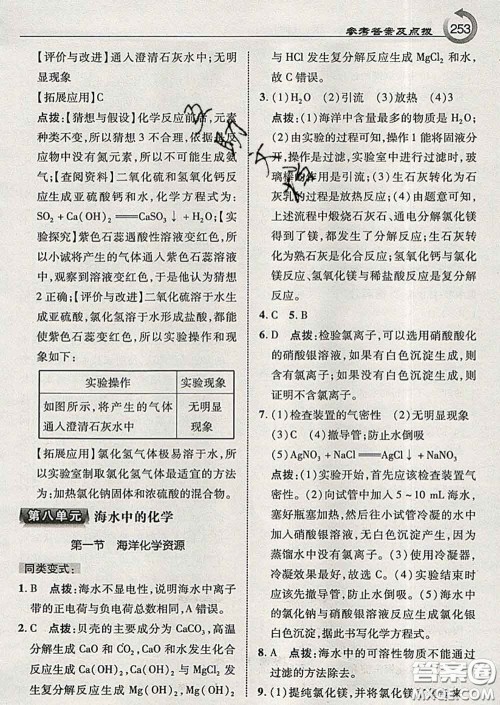 参考答案及点拨 253
【评价与改进】通入澄清石灰水中；无明
显现象
【拓展应用】C
点拨：【猜想与假设】化学反应前后，元素
种类不变，所以猜想 3 不合理，依据是反
应物中没有氮元素，所以不可能生成氨
气；【查阅资料】二氧化硫和氢氧化钙反
应生成亚硫酸钙和水，化学方程式为：
SO₂ + Ca(OH)₂ ═══ CaSO₃↓ + H₂O；【实
验探究】紫色石蕊遇酸性溶液变红色，所
以小诚将产生的气体通入紫色石蕊溶液
中，观察到溶液变红色，于是他认为猜想
2 正确；【评价与改进】二氧化硫溶于水生
成亚硫酸，氯化氢溶于水形成盐酸，都能
使紫色石蕊变红色，所以实验操作及现象
如下：
实验操作 实验现象
如图所示，将产生的气体 无明显
通入澄清石灰水中 现象
【拓展应用】氯化氢气体极易溶于水，所
以实验室制取氯化氢气体最适宜的方法
为：加热氯化钠固体和浓硫酸的混合物。
第八单元 海水中的化学
第一节 海洋化学资源
同类变式：
1. B 点拨：海水不显电性，说明海水中离子
带的正电荷与负电荷总数相同，A 错误。
2. C 点拨：贝壳的主要成分为 CaCO₃，高温
分解生成 CaO 和 CO₂，CaO 和水发生化合
反应生成 Ca(OH)₂，Ca(OH)₂ 与 MgCl₂
与 HCl 发生复分解反应生成 MgCl₂ 和
水，故 C 错误。
3. (1)H₂O (2)引流 (3)放热 (4)3
点拨：(1)海洋中含量最多的物质是水，
其化学式为：H₂O；
(2)由实验的过程可知，操作 1 能将固液分
开，是过滤，实验室中进行过滤时，玻
璃棒的作用是引流；(3)生石灰转化为石
灰乳的过程是放热的；(4)由题意可知，
上述流程中煅烧石灰石，通电分解氯化镁
得到了镁，都发生了分解反应；生石灰转
化为熟石灰是化合反应；氢氧化钙与氯化
镁反应、氢氧化镁与稀盐酸反应是复分解
反应。
4. C 5. B
6. D 点拨：检验氯离子，可以选用硝酸酸化
的硝酸银溶液，如果有白色沉淀生成，则
含有氯离子，如果没有白色沉淀生成，则
证明不含氯离子。
7. (1)检查装置的气密性 (2)无明显现象
(3)冷凝 (4)撤导管；防止水倒吸
(5)AgNO₃ + NaCl ═══ AgCl↓ + NaNO₃
点拨：(1)实验开始，首先应该检查装置气
密性。(2)向试管中加入 5～10 mL 海水，
塞好瓶塞加热，然后收集冷凝的水，往冷
凝水中滴加硝酸银溶液，无明显现象，因为
蒸馏水中没有氯离子。(3)使用冷凝器，
冷凝效果最好。(4)实验结束时
应该先撤导管，防止水倒吸。(5)海水中
的氯化钠与硝酸银反应生成氯化银沉淀
和硝酸钠，据此书写化学方程式。
8. A
点拨：海水中的可溶性杂质不能通过过滤
的方法除去。
9. (1)提纯氯化镁，并将氯化镁